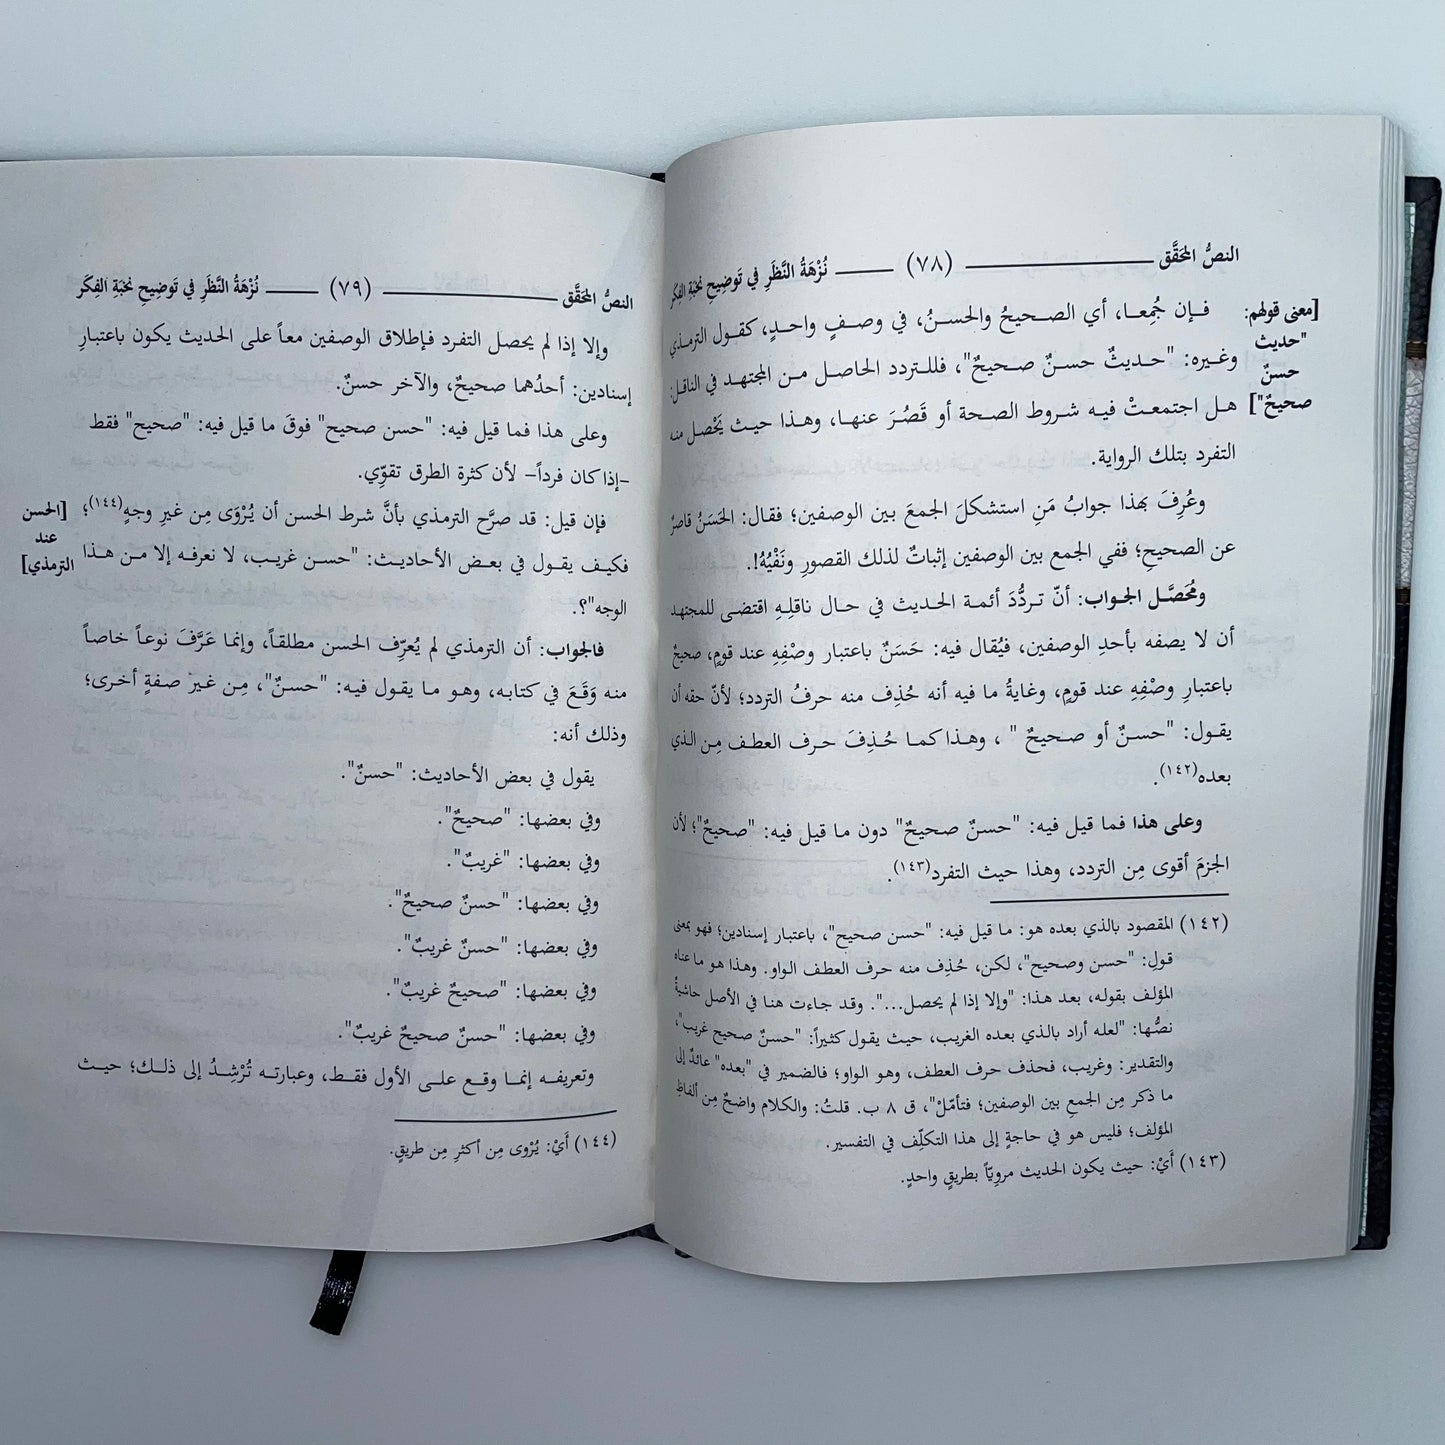 النصُّ المحَقَّق (٧٨) نُزْهَةُ النَّظَرِ في تَوضِيحِ نُخبَةِ الفِكَر
[معنى قولهم:
"حديث
حسنٌ
صحيحٌ"]
فــإن جُمِعــا، أي الصــحيحُ والحســنُ، في وصــفٍ واحــدٍ، كقــول الترمــذي
وغــيره: "حــديثٌ حســنٌ صــحيحٌ"، فللــتردد الحاصــل مــن المجتهــد في الناقــل:
هــل اجتمعــتْ فيــه شــروط الصــحة أو قَصُــرَ عنهــا، وهــذا حيــث يَحْصــل منه
التفرد بتلك الرواية.
وعُرِفَ بهذا جوابُ مَنِ استشكلَ الجمعَ بين الوصفين؛ فقال: الحَسَنُ قاصرٌ
عن الصحيحِ؛ ففي الجمع بين الوصفين إثباتٌ لذلك القصورِ ونَفْيُهُ!.
ومُحَصَّــل الجــواب: أنّ تــردُّدَ أئمــة الحــديث في حــال ناقلِــهِ اقتضــى للمجتهــد
أن لا يصفه بأحدِ الوصفين، فيُقال فيه: حَسَنٌ باعتبار وصْفِهِ عند قومٍ، صحيحٌ
باعتبارِ وصْفِهِ عند قومٍ، وغايةُ ما فيه أنه حُذِف منه حرفُ التردد؛ لأنّ حقه أن
يقــول: "حســنٌ أو صــحيحٌ " ، وهــذا كمــا حُــذِفَ حــرف العطــف مِــن الــذي
بعده(١٤٢).
وعلى هذا فما قيل فيه: "حسنٌ صحيحٌ" دون ما قيل فيه: "صحيحٌ"؛ لأن
الجزمَ أقوى مِن التردد، وهذا حيث التفرد(١٤٣).
(١٤٢) المقصود بالذي بعده هو: ما قيل فيه: "حسن صحيح"، باعتبار إسنادين؛ فهو بمعنى
قولِ: "حسن وصحيح"، لكن، حُذِف منه حرف العطف الواو. وهذا هو ما عناه
المؤلف بقوله، بعد هذا: "وإلا إذا لم يحصل...". وقد جاءت هنا في الأصل حاشيةٌ
نصُّها: "لعله أراد بالذي بعده الغريب، حيث يقول كثيراً: "حسنٌ صحيح غريب"،
والتقدير: وغريب، فحذف حرف العطف، وهو الواو؛ فالضمير في "بعده" عائدٌ إلى
ما ذكر مِن الجمع بين الوصفين؛ فتأمّلْ"، ق ٨ ب. قلتُ: والكلام واضحٌ مِن ألفاظِ
المؤلف؛ فليس هو في حاجةٍ إلى هذا التكلِّف في التفسير.
(١٤٣) أَيْ: حيث يكون الحديث مرويّاً بطريقٍ واحدٍ.
النصُّ المحَقَّق (٧٩) نُزْهَةُ النَّظَرِ في تَوضِيحِ نُخبَةِ الفِكَر
وإلا إذا لم يحصل التفرد فإطلاق الوصفين معاً على الحديث يكون باعتبارِ
إسنادين: أحدُهما صحيحٌ، والآخر حسنٌ.
وعلى هذا فما قيل فيه: "حسن صحيح" فوقَ ما قيل فيه: "صحيح" فقط
-إذا كان فرداً- لأن كثرة الطرق تقوِّي.
[الحسن
عند
الترمذي]
فإن قيل: قد صرَّح الترمذي بأنَّ شرط الحسن أن يُرْوَى مِن غيرِ وجهٍ(١٤٤)؛
فكيــف يقــول في بعــض الأحاديــث: "حســن غريــب، لا نعرفــه إلا مــن هــذا
الوجه"؟.
فالجواب: أن الترمذي لم يُعرِّف الحسن مطلقاً، وإنما عَرَّفَ نوعاً خاصاً
منه وَقَعَ في كتابه، وهو ما يقول فيه: "حسنٌ"، مِن غير صفةٍ أخرى؛
وذلك أنه:
يقول في بعض الأحاديث: "حسنٌ".
وفي بعضها: "صحيحٌ".
وفي بعضها: "غريبٌ".
وفي بعضها: "حسنٌ صحيحٌ".
وفي بعضها: "حسنٌ غريبٌ".
وفي بعضها: "صحيحٌ غريبٌ".
وفي بعضها: "حسنٌ صحيحٌ غريبٌ".
وتعريفــه إنمــا وقــع علــى الأول فقــط، وعبارتــه تُرْشِــدُ إلى ذلــك؛ حيــث
(١٤٤) أَيْ: يُرْوى مِن أكثرِ مِن طريقٍ.